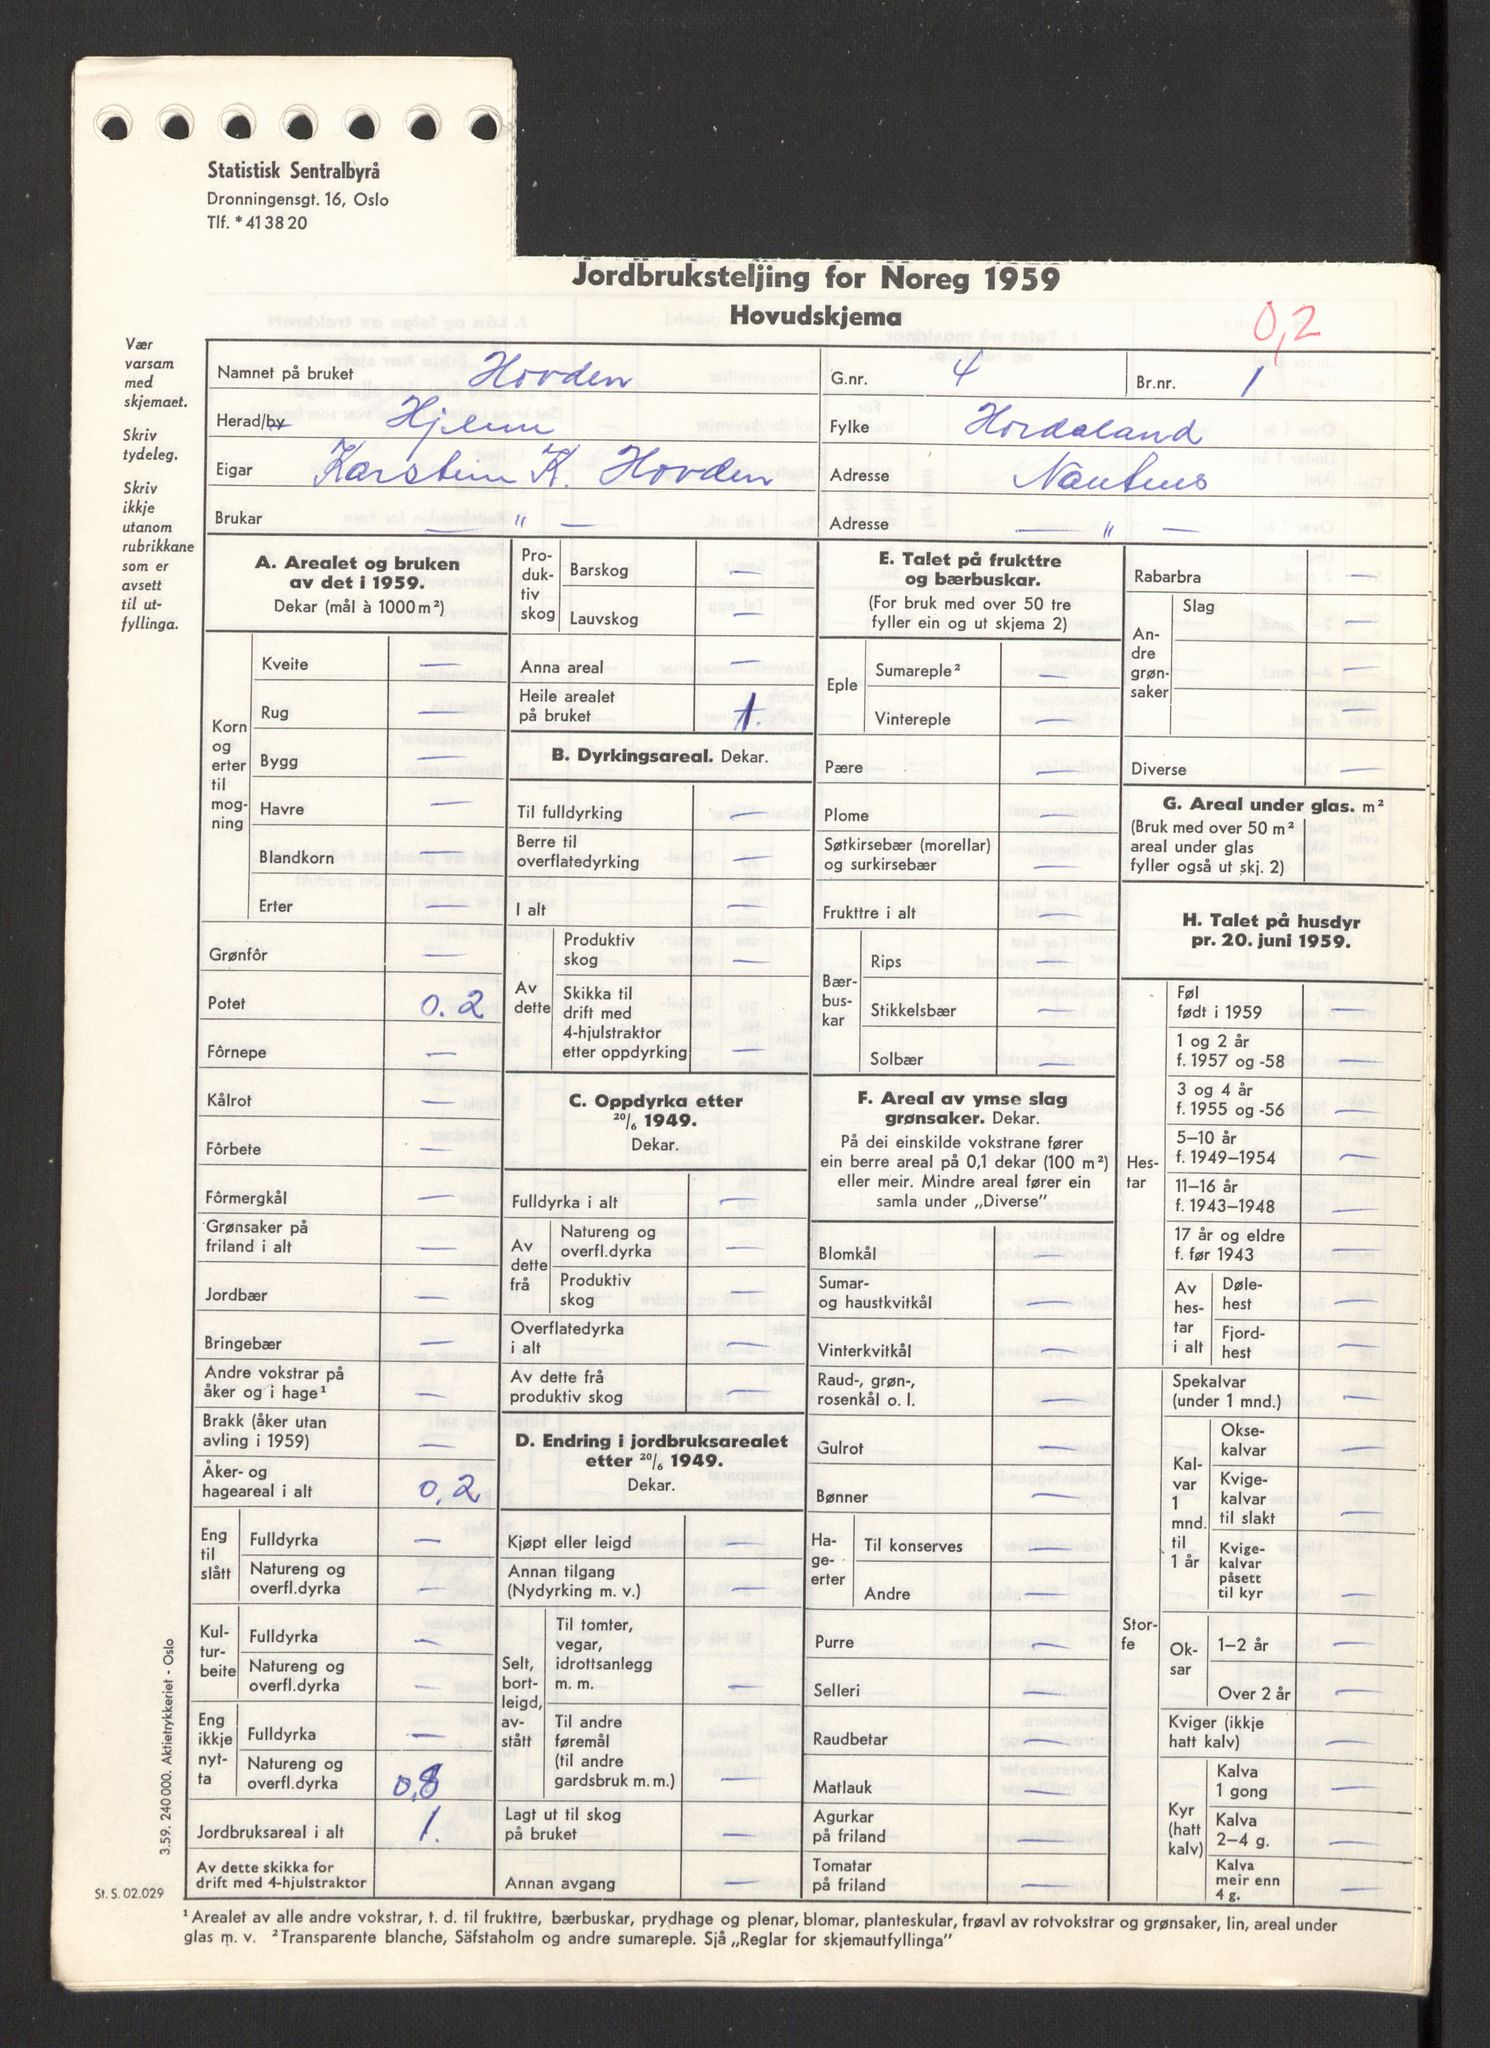 Statistisk Sentralbyrå
Dronningensgt. 16, Oslo
Tlf. *413820
Jordbruksteljing for Noreg 1959
Hovudskjema
0,2
Vær
varsam
med
skjemaet.
Skriv
tydeleg.
Skriv
ikkje
utanom
rubrikkane
som er
avsett
til ut-
fyllinga.
Namnet på bruket Hovden G.nr. 4 Br.nr. 1
Herad/by Hjelme Fylke Hordaland
Eigar Karstein K. Hovden Adresse Nautnes
Brukar — " — Adresse — " —
A. Arealet og bruken
av det i 1959.
Dekar (mål à 1000 m²)
Korn
og
erter
til
mog-
ning
Kveite —
Rug —
Bygg —
Havre —
Blandkorn —
Erter —
Grønfôr —
Potet 0.2
Fôrnepe —
Kålrot —
Fôrbete —
Fôrmergkål —
Grønsaker på
friland i alt —
Jordbær —
Bringebær —
Andre vokstrar på
åker og i hage¹ —
Brakk (åker utan
avling i 1959) —
Åker- og
hageareal i alt 0,2
Eng
til
slått
Fulldyrka —
Natureng og
overfl.dyrka —
Kul-
tur-
beite
Fulldyrka —
Natureng og
overfl.dyrka —
Eng
ikkje
nyt-
ta
Fulldyrka —
Natureng og
overfl.dyrka 0,8
Jordbruksareal i alt 1.
Av dette skikka for
drift med 4-hjulstraktor
Pro-
duk-
tiv
skog
Barskog —
Lauvskog —
Anna areal —
Heile arealet
på bruket 1.
B. Dyrkingsareal. Dekar.
Til fulldyrking —
Berre til
overflatedyrking —
I alt —
Av
dette
Produktiv
skog —
Skikka til
drift med
4-hjulstraktor
etter oppdyrking —
C. Oppdyrka etter
20/6 1949.
Dekar.
Fulldyrka i alt —
Av
dette
frå
Natureng og
overfl.dyrka —
Produktiv
skog —
Overflatedyrka
i alt —
Av dette frå
produktiv skog —
D. Endring i jordbruksarealet
etter 20/6 1949.
Dekar.
Kjøpt eller leigd —
Annan tilgang
(Nydyrking m. v.) —
Selt,
bort-
leigd,
av-
stått
Til tomter,
vegar,
idrottsanlegg
m. m. —
Til andre
føremål
(til andre
gardsbruk m. m.) —
Lagt ut til skog
på bruket —
Annan avgang —
E. Talet på frukttre
og bærbuskar.
(For bruk med over 50 tre
fyller ein og ut skjema 2)
Eple
Sumareple² —
Vintereple —
Pære —
Plome —
Søtkirsebær (morellar)
og surkirsebær —
Frukttre i alt —
Bær-
bus-
kar
Rips —
Stikkelsbær —
Solbær —
F. Areal av ymse slag
grønsaker. Dekar.
På dei einskilde vokstrane fører
ein berre areal på 0,1 dekar (100 m²)
eller meir. Mindre areal fører ein
samla under „Diverse”
Blomkål —
Sumar-
og haustkvitkål —
Vinterkvitkål —
Raud-, grøn-,
rosenkål o. l. —
Gulrot —
Bønner —
Ha-
ge-
erter
Til konserves —
Andre —
Purre —
Selleri —
Raudbetar —
Matlauk —
Agurkar
på friland —
Tomatar
på friland —
Rabarbra —
An-
dre
grøn-
saker
Slag —
—
—
Diverse —
G. Areal under glas. m²
(Bruk med over 50 m²
areal under glas
fyller også ut skj. 2)
H. Talet på husdyr
pr. 20. juni 1959.
Hes-
tar
Føl
født i 1959 —
1 og 2 år
f. 1957 og -58 —
3 og 4 år
f. 1955 og -56 —
5–10 år
f. 1949–1954 —
11–16 år
f. 1943–1948 —
17 år og eldre
f. før 1943 —
Av
hes-
tar
i alt
Døle-
hest —
Fjord-
hest —
Stor-
fe
Spekalvar
(under 1 mnd.) —
Kal-
var
1
mnd.
til
1 år
Okse-
kalvar —
Kvige-
kalvar
til slakt —
Kvige-
kalvar
påsett
til kyr —
Ok-
sar
1–2 år —
Over 2 år —
Kviger (ikkje
hatt kalv) —
Kyr
(hatt
kalv)
Kalva
1 gong —
Kalva
2–4 g. —
Kalva
meir enn
4 g. —
3.59. 240000. Aktietrykkeriet - Oslo
St. S. 02.029
¹ Arealet av alle andre vokstrar, t. d. til frukttre, bærbuskar, prydhage og plenar, blomar, planteskular, frøavl av rotvokstrar og grønsaker, lin, areal under
glas m. v. ² Transparente blanche, Säfstaholm og andre sumareple. Sjå „Reglar for skjemautfyllinga”